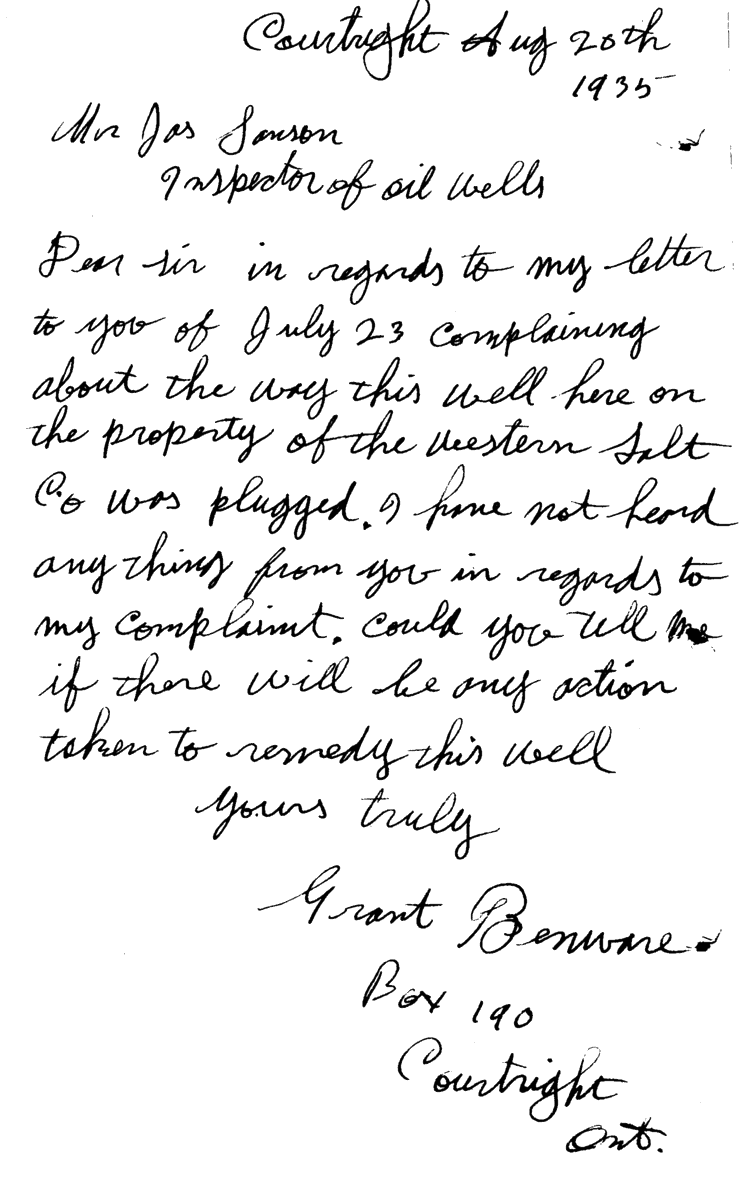 Courtright Aug 20th
1935
Mr Jas Sanson
Inspector of oil wells
Dear sir in regards to my letter
to you of July 23 complaining
about the way this well here on
the property of the western Salt
Co was plugged. I have not heard
any thing from you in regards to
my complaint. could you tell me
if there will be any action
taken to remedy this well
yours truly
Grant Benware
Box 190
Courtright
Ont.